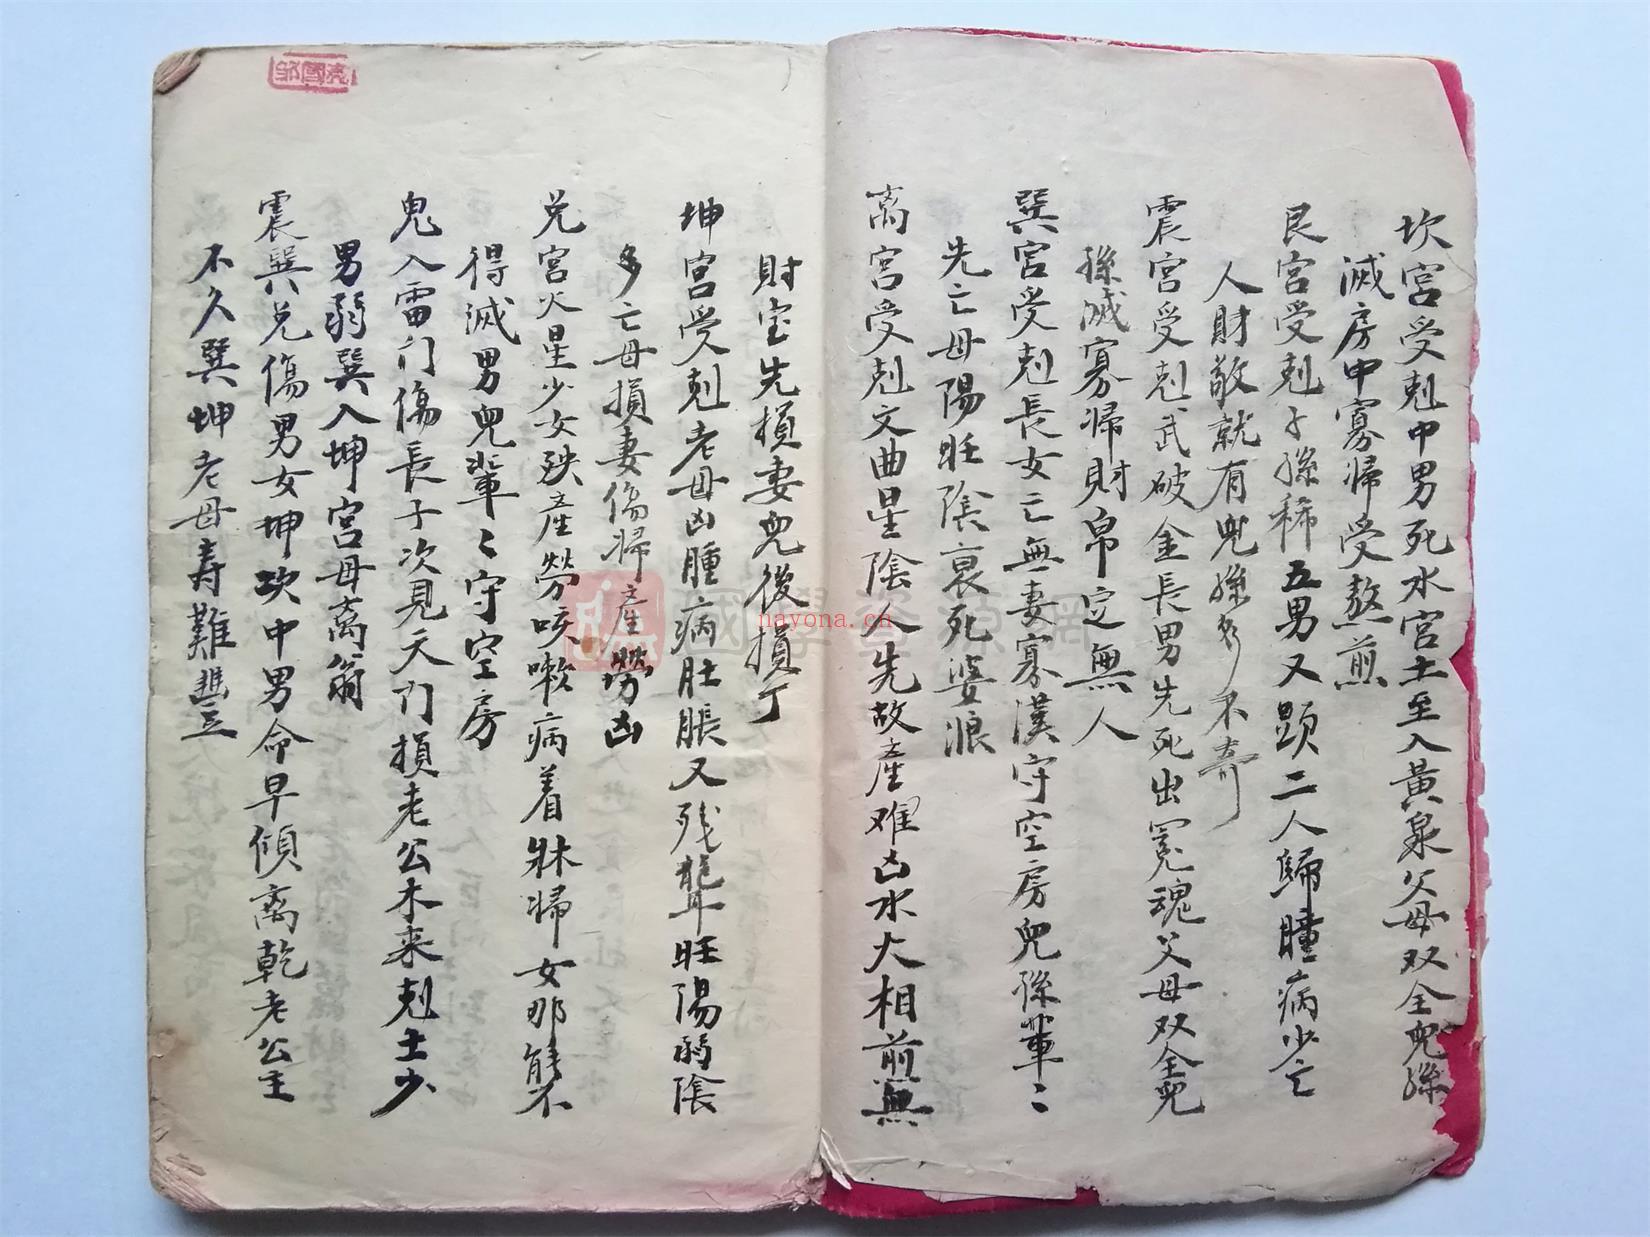 坎宮受剋中男死水宮土至入黃泉父母双全兒孫
滅房中寡帰受熬煎
艮宮受剋子孫稀五男又顕二人歸瞳病少亡
人財敬就有兒孫多不寿
震宮受剋武破金長男先死出冤魂父母双全兒
孫滅寡帰財帛定無人
巽宮受剋長女亡無妻寡漢守空房兒孫輩〻
先亡母陽旺陰衰死婆浪
离宮受剋文曲星陰人先故產难凶水大相煎無
財宝先損妻兒後損丁
坤宮受剋老母凶腫病肚脹又残聾旺陽弱陰
多亡母損妻傷帰產勞凶
兑宮火星少女殃產勞咳嗽病着牀帰女那能不
得滅男兒輩〻守空房
鬼入雷门傷長子次見天门損老公木来剋土少
男弱巽入坤宮母离翁
震巽兑傷男女坤坎中男命早傾离乾老公主
不久巽坤老母寿難豊
國學資源网
nayona.cn